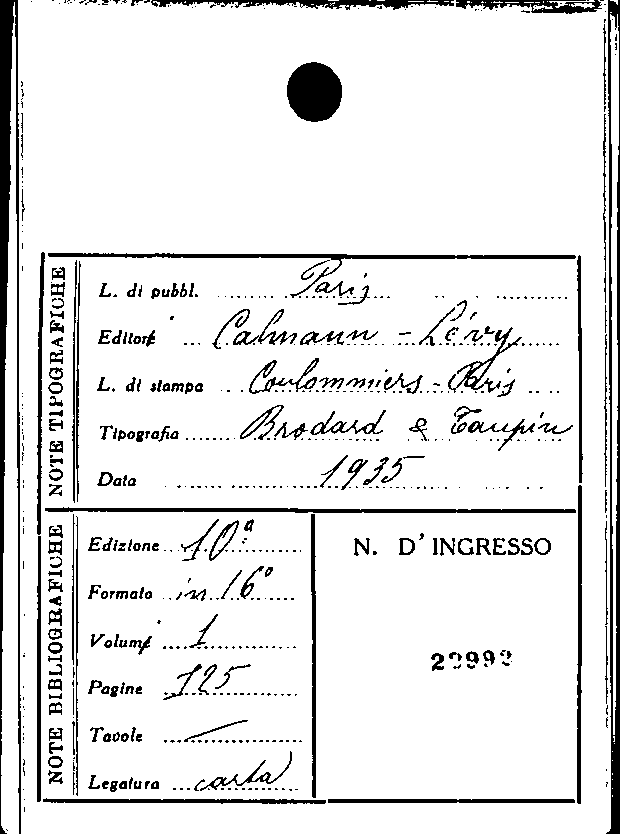 NOTE TIPOGRAFICHE
L. di pubbl. Paris
Editore Calmann - Lévy
L. di stampa Coulommiers - Paris
Tipografia Brodard & Taupin
Data 1935
NOTE BIBLIOGRAFICHE
Edizione 10ª
Formato in 16°
Volume 1
Pagine 125
Tavole —
Legatura carta
N. D'INGRESSO